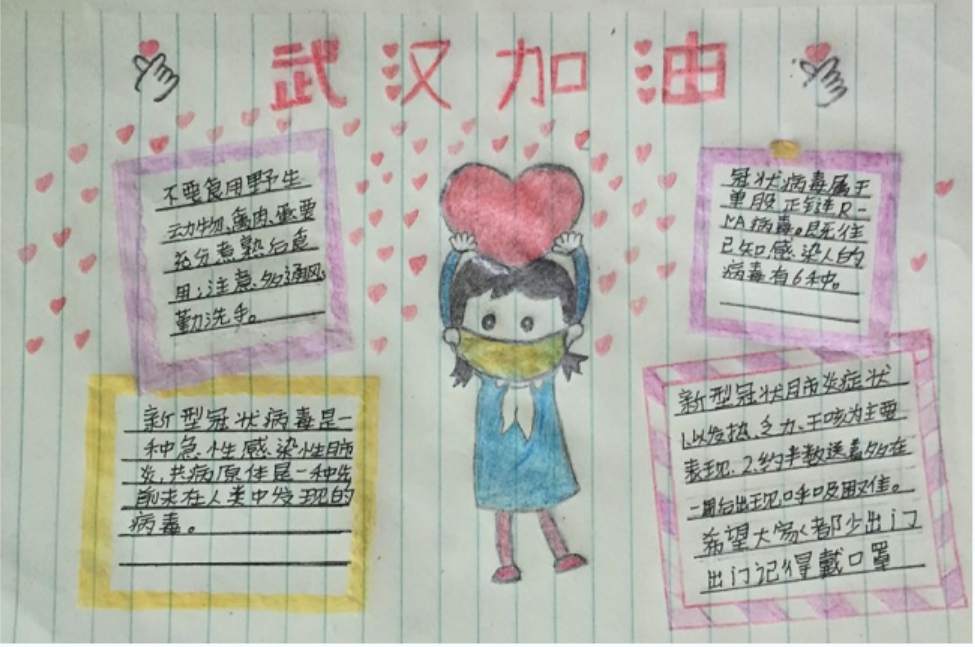 武汉加油
不要食用野生
动物、禽肉、蛋要
充分煮熟后食
用；注意、多通风
勤洗手。
冠状病毒属于
单股正链R-
NA病毒。既往
已知感染人的
病毒有6种。
新型冠状病毒是一
种急性感染性肺
炎，其病原体是一种先
前未在人类中发现的
病毒。
新型冠状肺炎症状
1.以发热、乏力、干咳为主要
表现．2.约半数送者多在
一周后出现呼吸困难。
希望大家都少出门
出门记得戴口罩